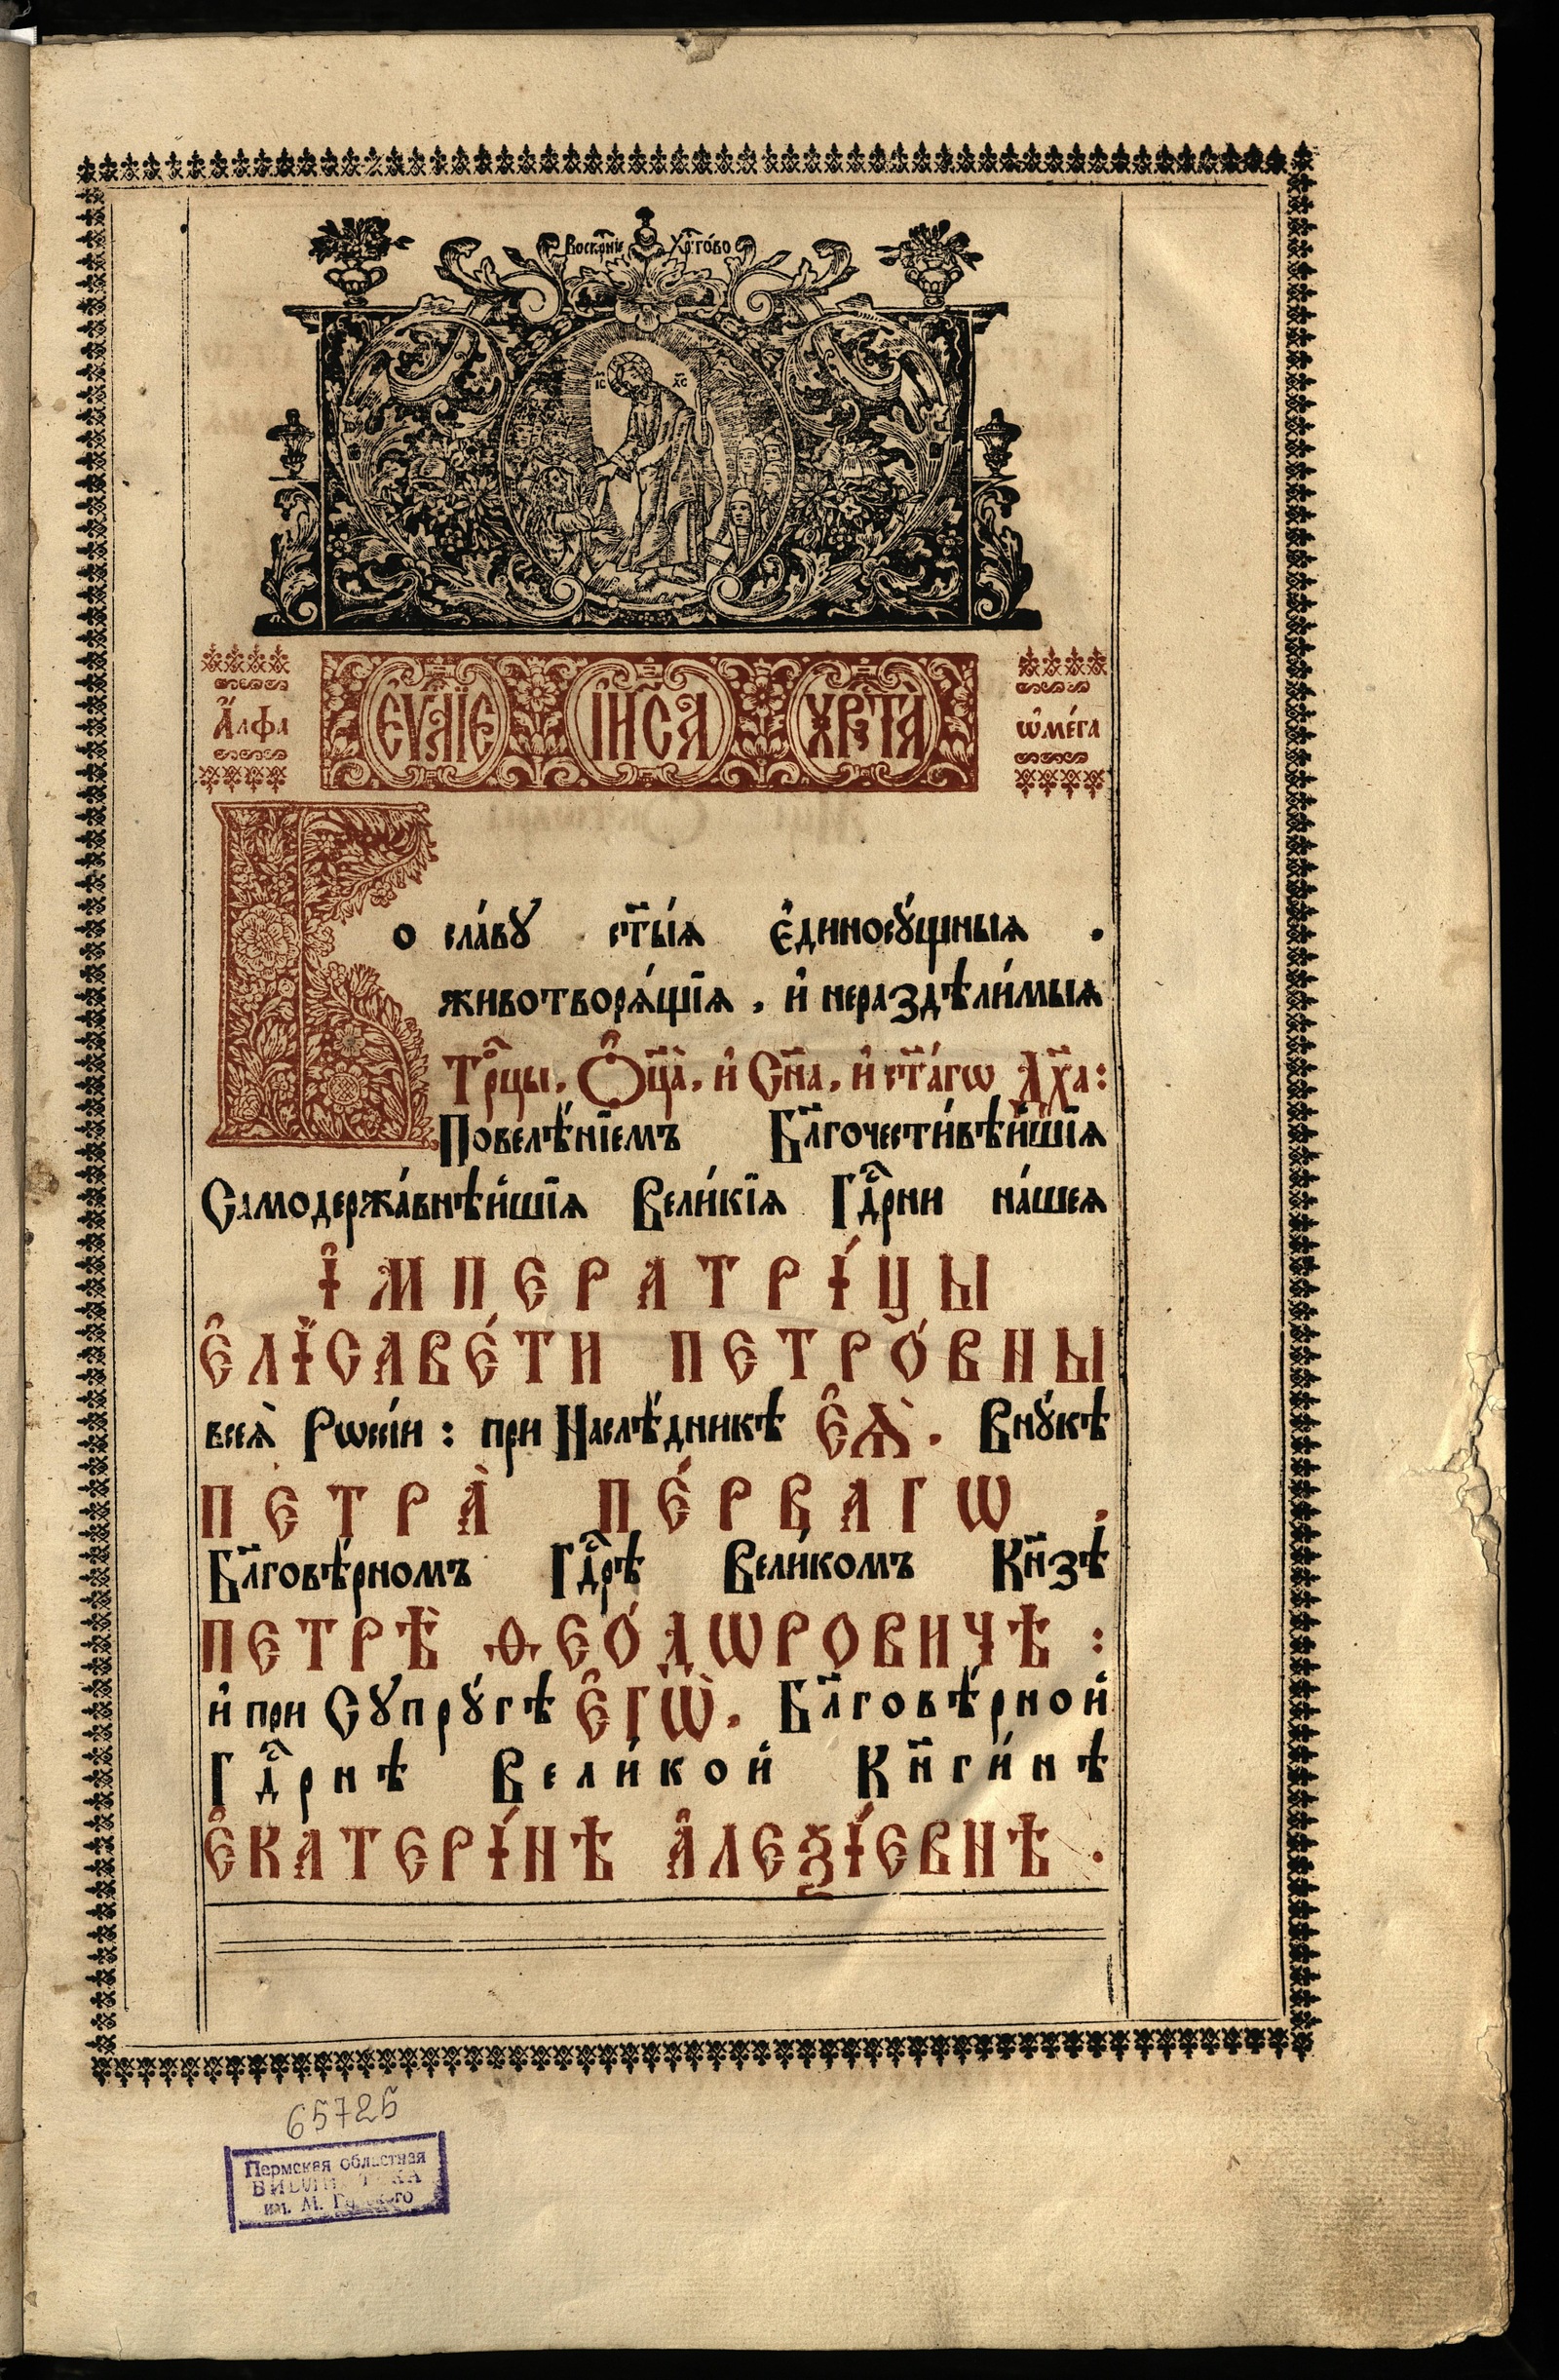 Воскр҃нїе Хр҃то́во
І҃С Х҃С
А҆́лфа Є҆Ѵ҃ЛЇЕ І҆И҃СА ХР҃ТА̀ ѡ҆ме́га
Во сла́ву ст҃ы́ѧ є҆диносꙋ́щныѧ .
животворѧ́щїѧ , и҆ нераздѣли́мыѧ
Трⷪ҇цы , Ѻ҆ц҃а̀ , и҆ Сн҃а , и҆ ст҃а́гѡ Дх҃а :
Повелѣ́нїемъ Бл҃гочести́вѣйшїѧ
Самодержа́внѣйшїѧ Вели́кїѧ Гдⷭ҇рни на́шеѧ
І҆МПЕРАТРІ́ЦЫ
Е҆ЛЇСАВЕ́ТИ ПЕТРО́ВНЫ
всеѧ̀ Рѡссі́и : при Наслѣ́дникѣ Е҆Ѧ̀ . Внꙋ́кѣ
ПЕТРА̀ ПЕ́РВАГѠ .
Бл҃говѣ́рномъ Гдⷭ҇рѣ Вели́комъ Кн҃зѣ
ПЕТРѢ̀ ѲЕО́ДѠРОВИЧѢ :
и҆ при Сꙋпрꙋ́гѣ Е҆ГѠ̀ . Бл҃говѣ́рной
Гдⷭ҇рнѣ Вели́кой Кн҃ги́нѣ
Е҆КАТЕРІ́НѢ А҆ЛЕѮІ́ЕВНѢ .
65725
Пермская областная
БИБЛИОТЕКА
им. М. Горького